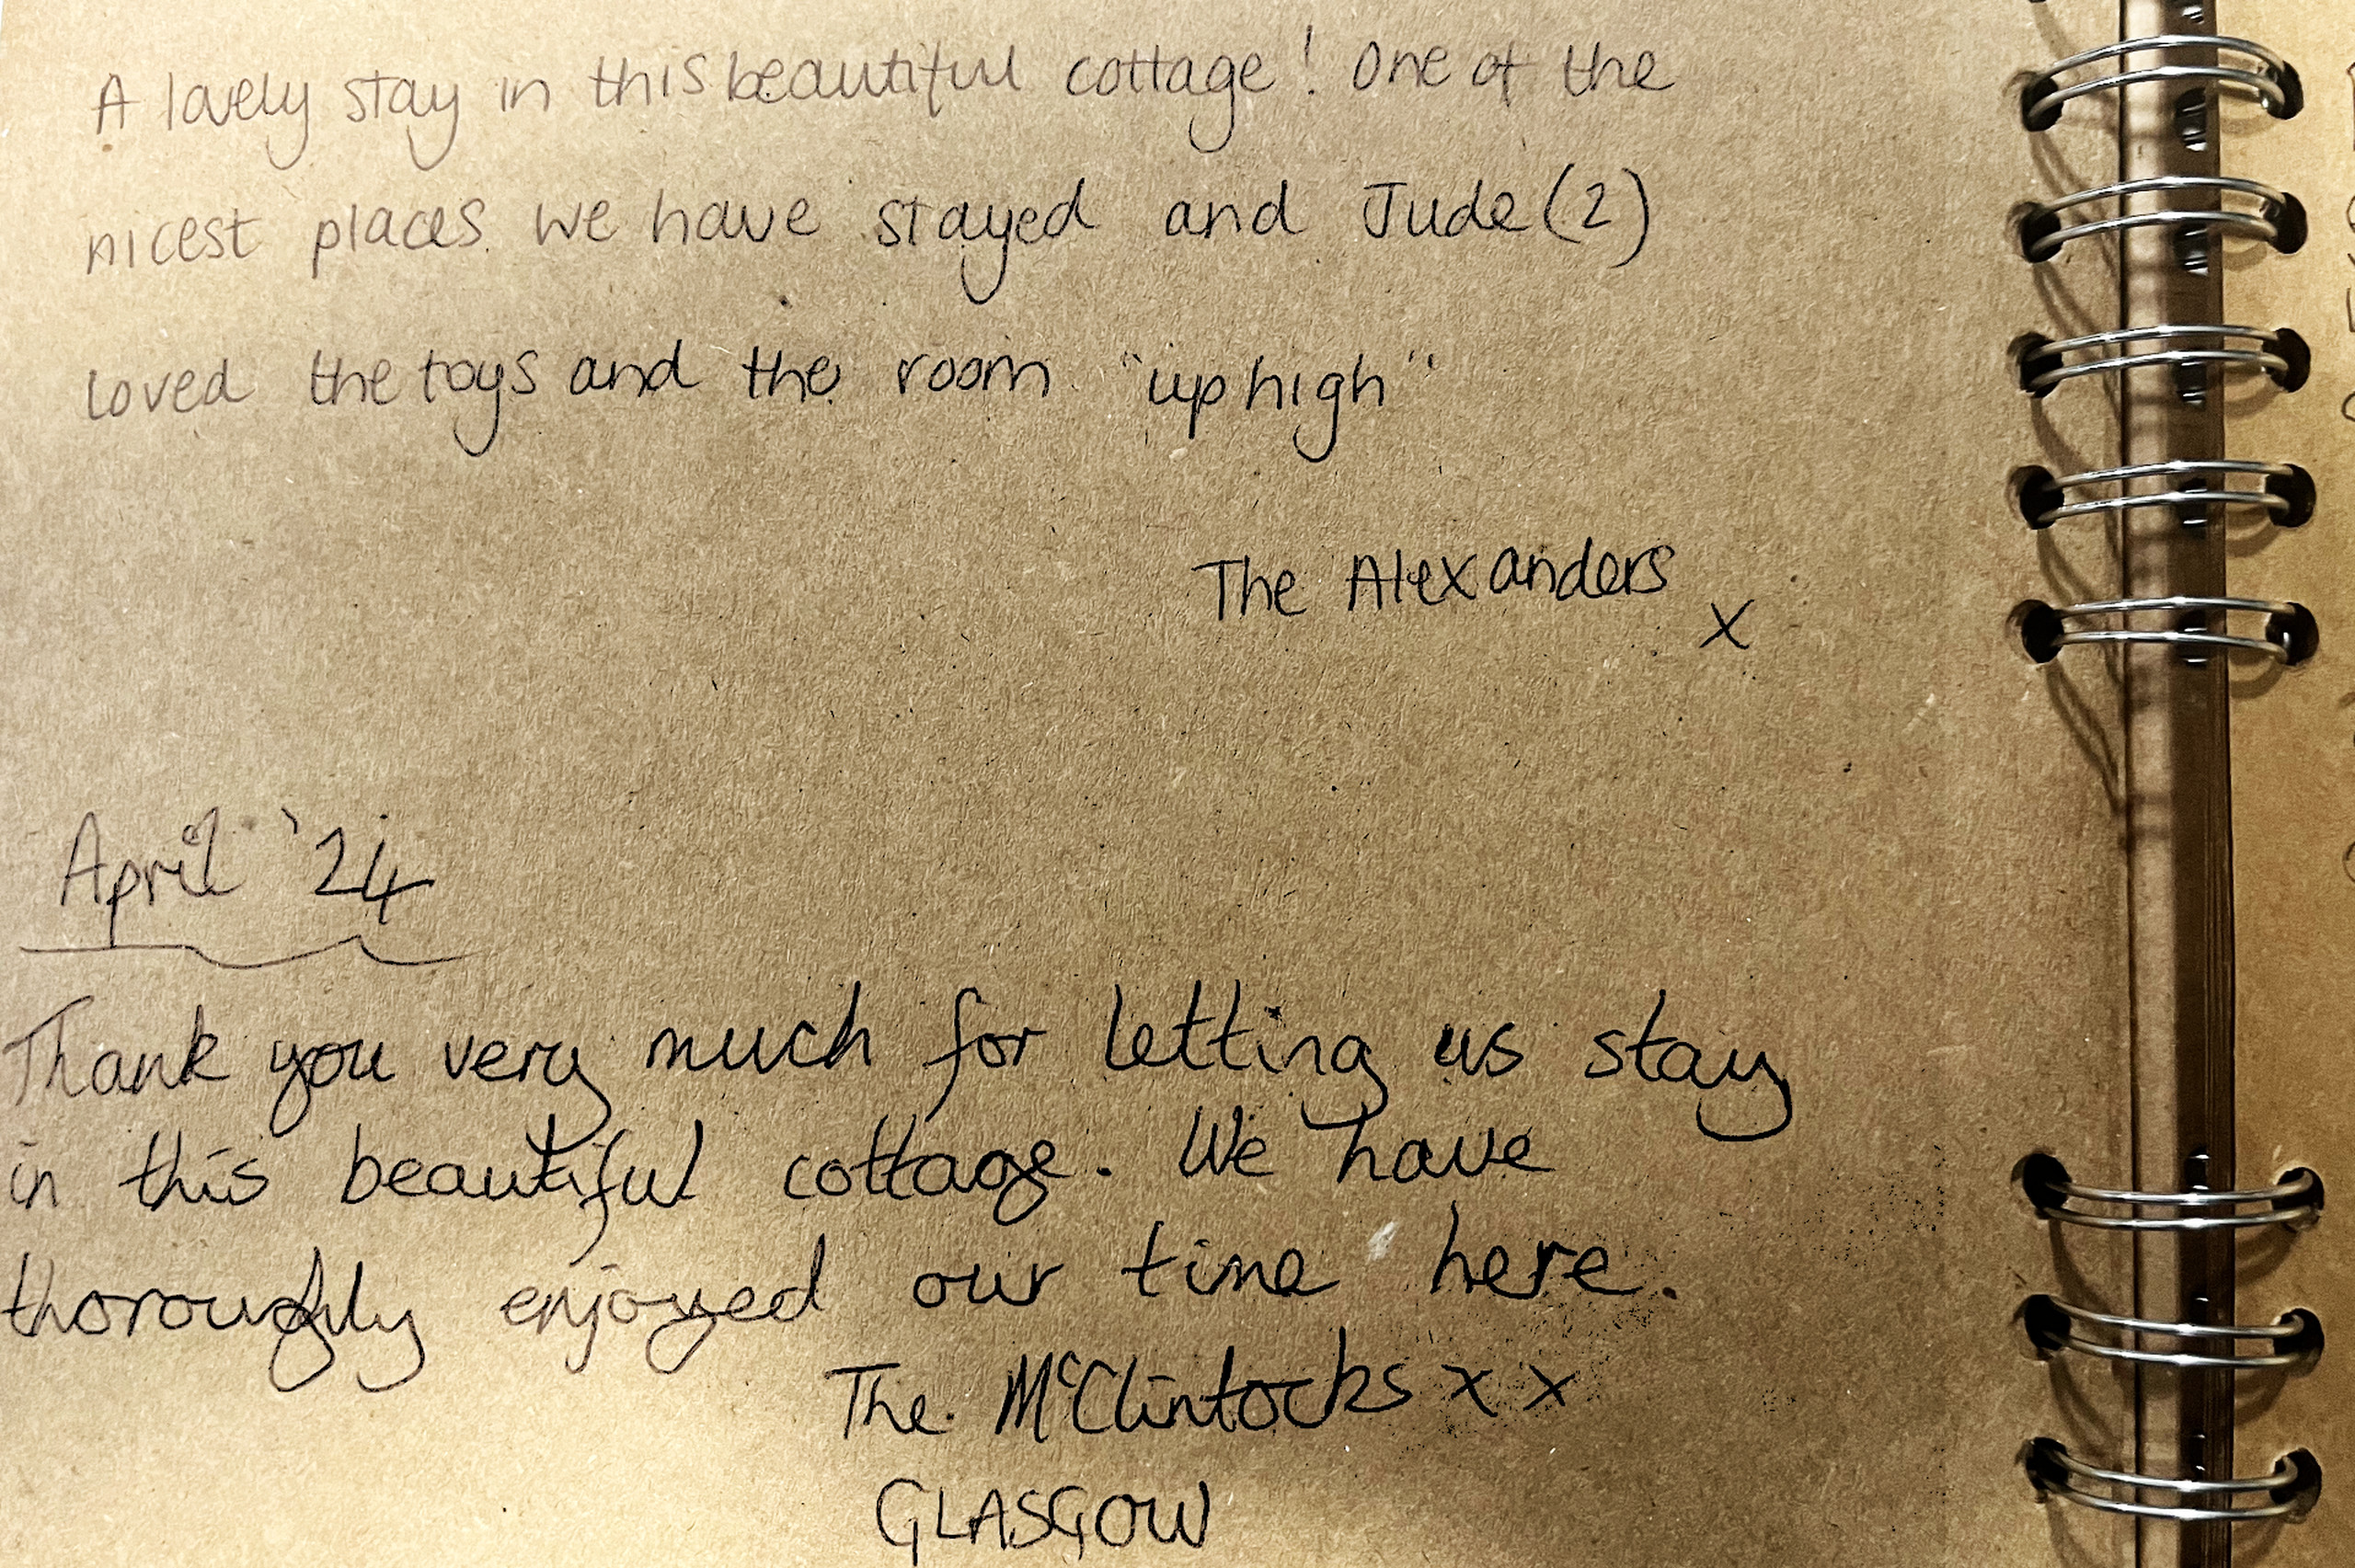 A lovely stay in this beautiful cottage! One of the
nicest places we have stayed and Jude (2)
loved the toys and the room "up high"
The Alexanders
x
April '24
Thank you very much for letting us stay
in this beautiful cottage. We have
thoroughly enjoyed our time here.
The McClintocks x x
GLASGOW